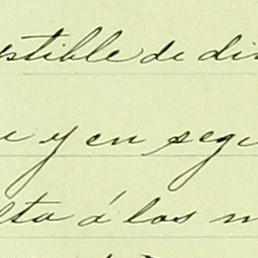 stible de di
e y en segu
lta á los m